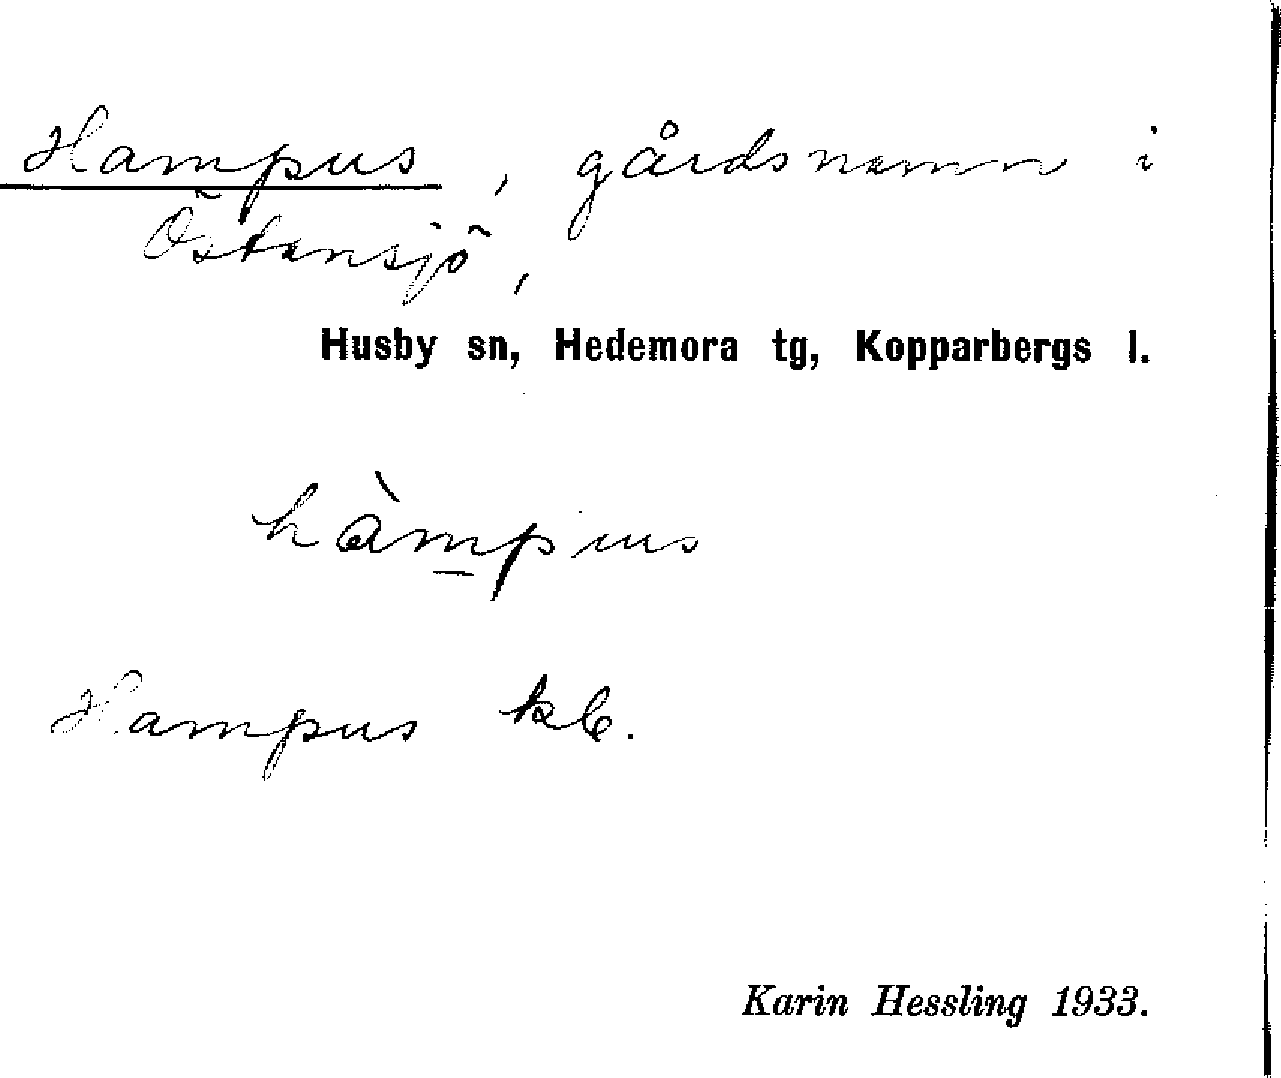 Hampus, gårdsnamn i
Östansjö,
Husby sn, Hedemora tg, Kopparbergs l.
hàm̲pus
Hampus kb.
Karin Hessling 1933.